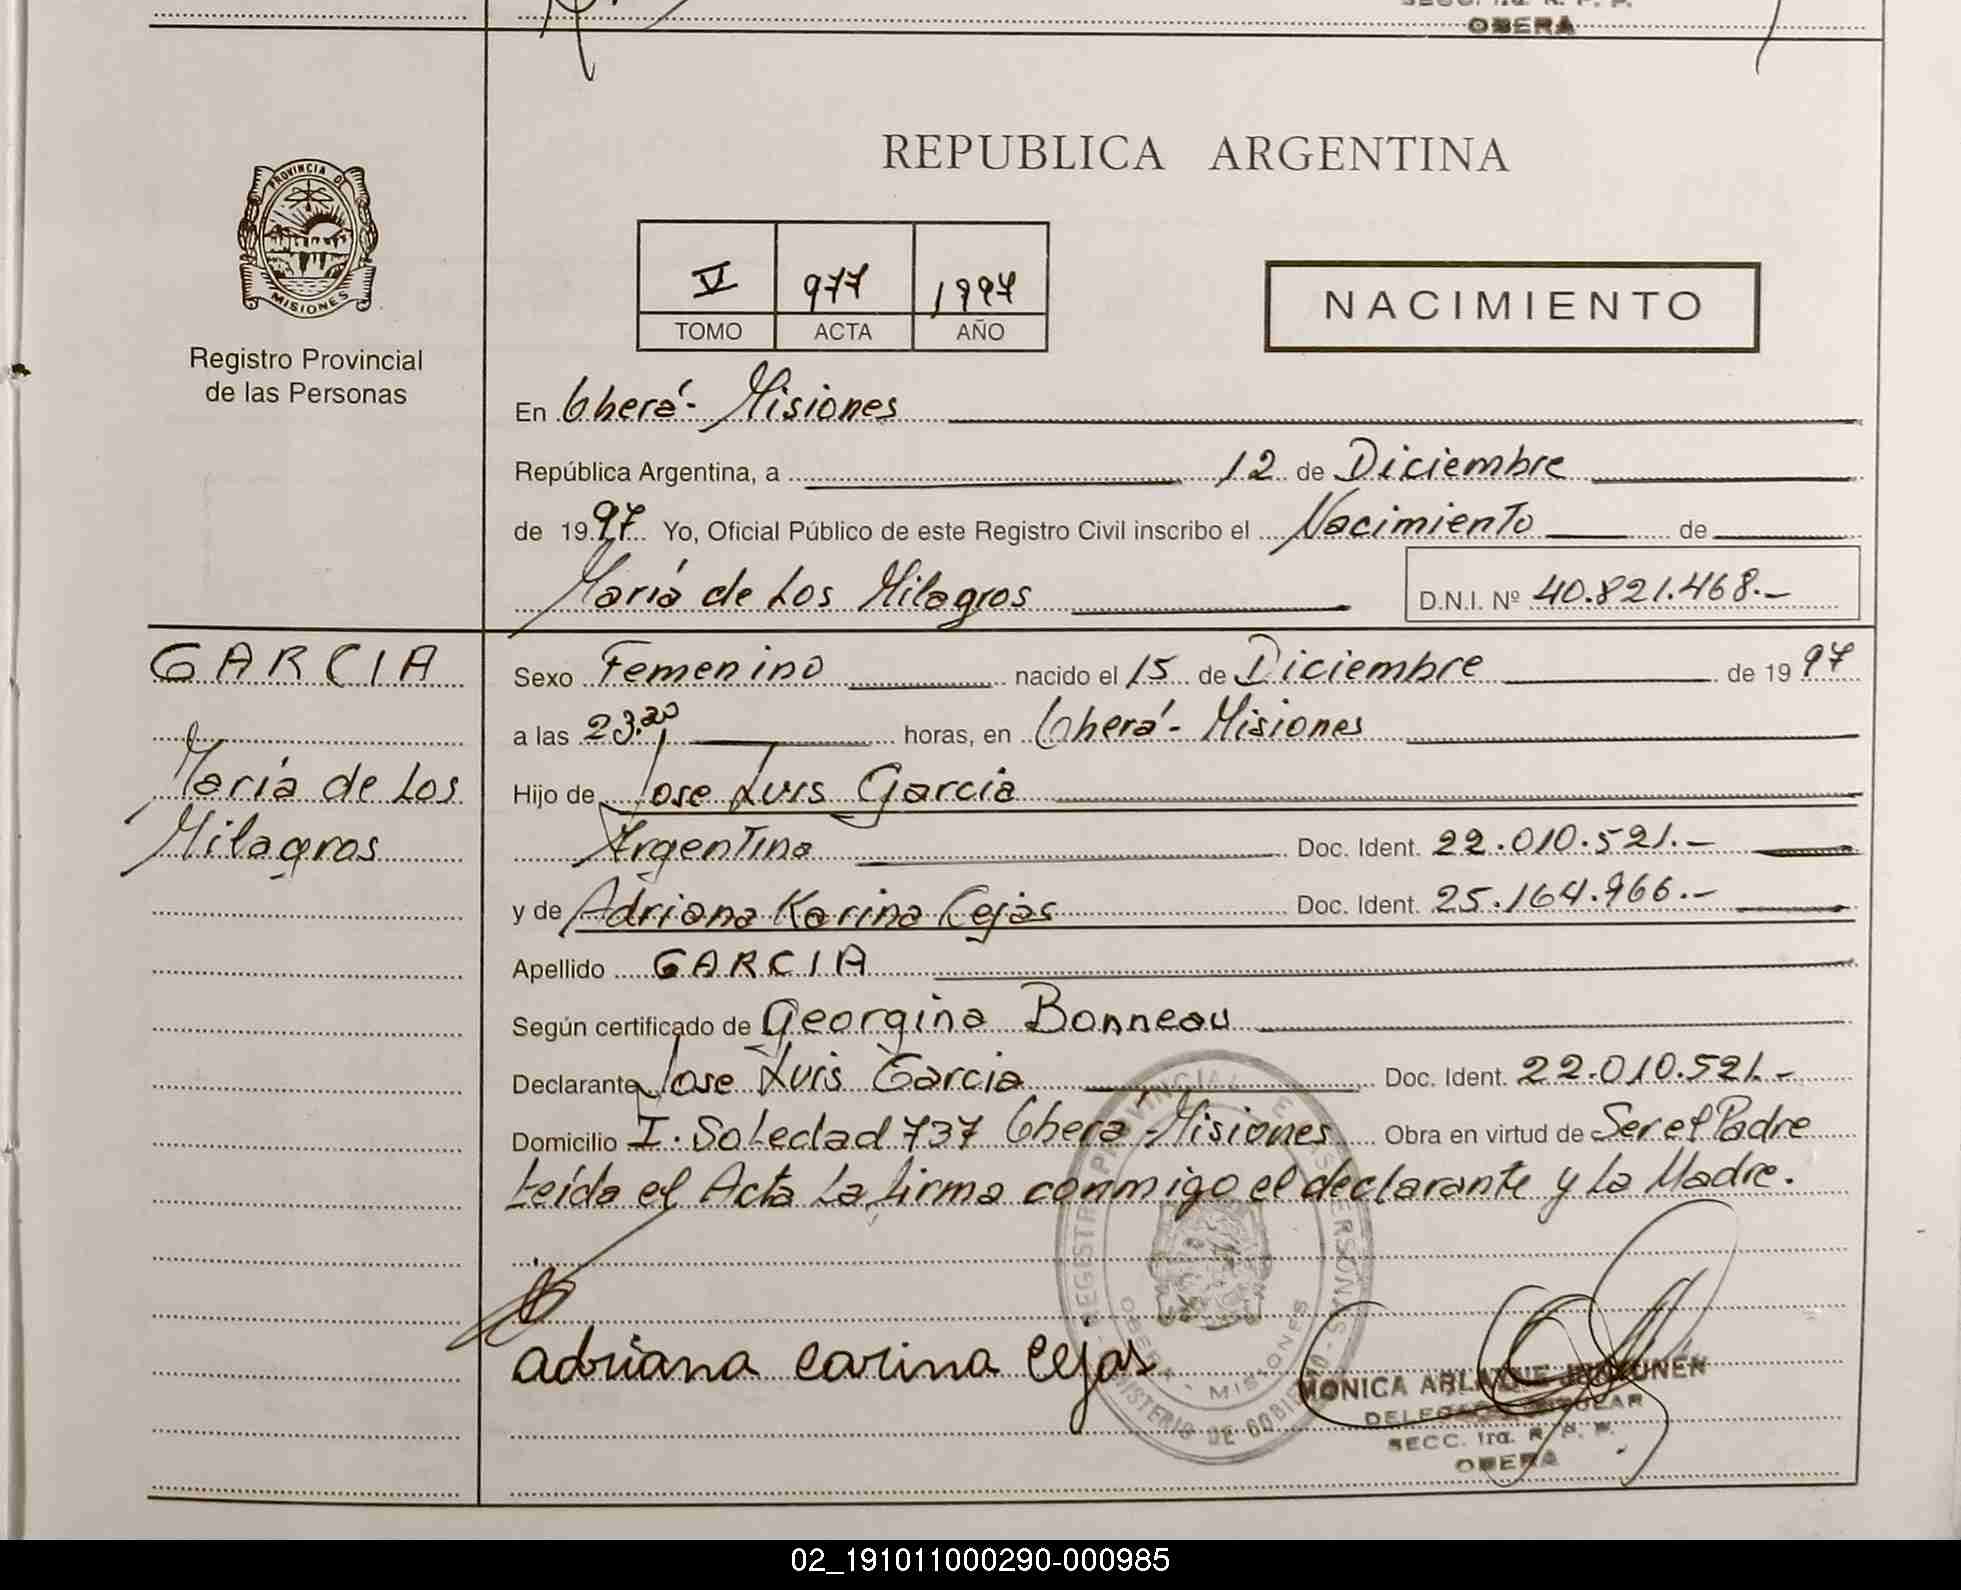 OBERA
REPUBLICA ARGENTINA
PROVINCIA DE
MISIONES
Registro Provincial
de las Personas
V 977 1997
TOMO ACTA AÑO
NACIMIENTO
En Oberá - Misiones
República Argentina, a 12 de Diciembre
de 1997 Yo, Oficial Público de este Registro Civil inscribo el Nacimiento de
María de Los Milagros D.N.I. Nº 40.821.468.-
GARCIA
María de Los
Milagros
Sexo Femenino nacido el 15 de Diciembre de 1997
a las 23.20 horas, en Oberá - Misiones
Hijo de Jose Luis Garcia
Argentina Doc. Ident. 22.010.521.-
y de Adriana Karina Cejas Doc. Ident. 25.164.966.-
Apellido GARCIA
Según certificado de Georgina Bonneau
Declarante Jose Luis Garcia Doc. Ident. 22.010.521.-
Domicilio I. Soledad 737 Oberá - Misiones Obra en virtud de Ser el Padre
Leída el Acta La firma conmigo el declarante y La Madre.
adriana carina cejas
REGISTRO PROVINCIAL DE LAS PERSONAS
MINISTERIO DE GOBIERNO
OBERA - MISIONES
MONICA
SECC. 1ra. R. P. P.
OBERA
02_191011000290-000985